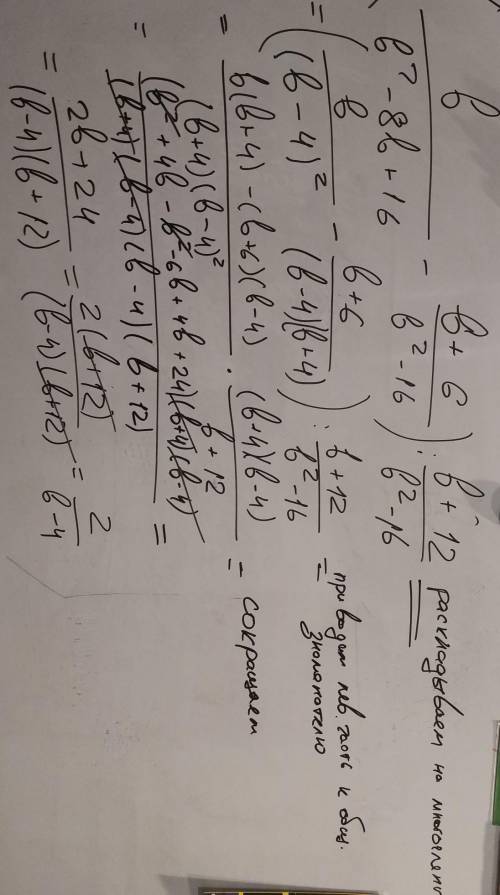 b / (b² - 8b + 16) - (b + 6) / (b² - 16) ) : (b + 12) / (b² - 16) раскладываем на
= ( b / (b - 4)² - (b + 6) / ((b-4)(b+4)) ) : (b + 12) / (b² - 16) = приводим лев. часть к общ. знаменателю
= (b(b+4) - (b+6)(b-4)) / ((b+4)(b-4)²) · ((b+4)(b-4)) / (b + 12) = сокращаем
= (b² + 4b - b² - 6b + 4b + 24)(b+4)(b-4) / ((b+4)(b-4)(b-4)(b+12)) =
= (2b + 24) / ((b-4)(b+12)) = 2(b+12) / ((b-4)(b+12)) = 2 / (b-4)